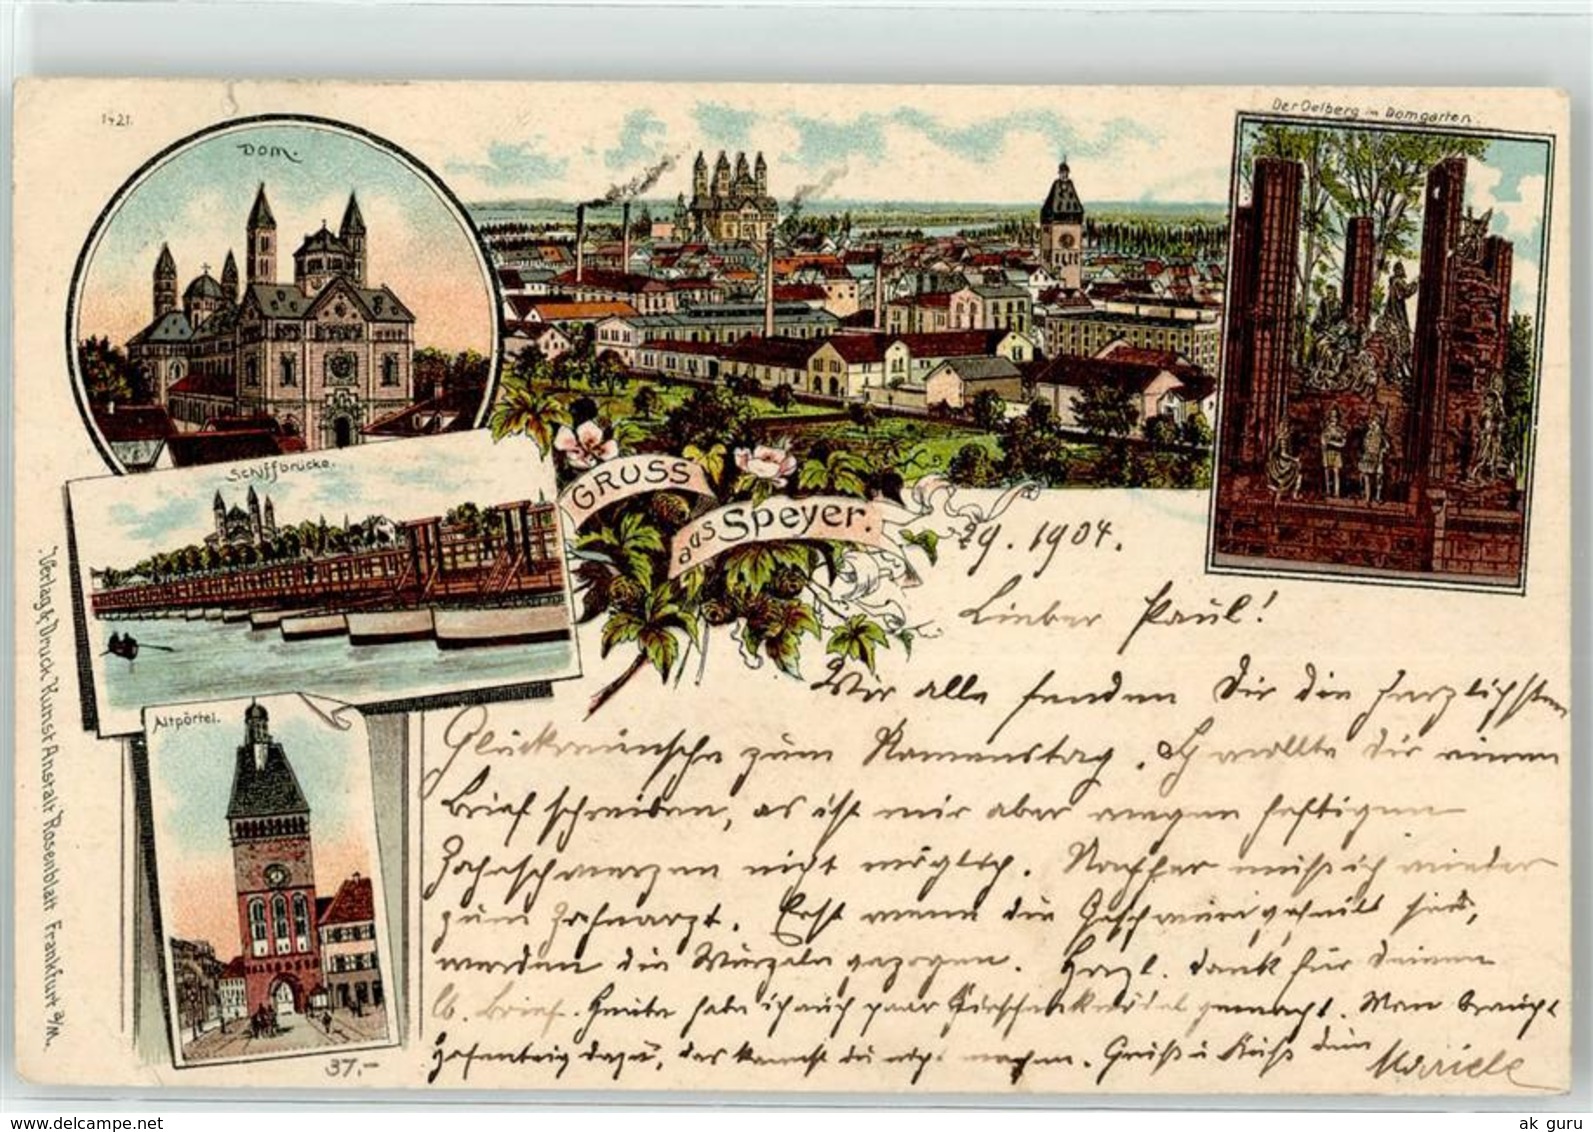 1421.
Dom.
Der Oelberg im Domgarten.
Schiffbrücke.
GRUSS
aus Speyer.
Altpörtel.
Verlag & Druck Kunst Anstalt Rosenblatt Frankfurt a/M.
29. 1904.
Lieber Paul!
Wir alle senden Dir die herzlichsten
Glückwünsche zum Namenstag. Ich wollte dir einen
Brief schreiben, es ist mir aber wegen heftigen
Zahnschmerzen nicht möglich. Nachher muß ich wieder
zum Zahnarzt. Erst wenn die Geschwüre geheilt sind,
werden die Wurzeln gezogen. Herzl. Dank für Deinen
lb. Brief. Heute habe ich auch paar gemacht. Man braucht
Hefenteig dazu, das kannst du machen. Gruß u Kuß dein
Mariele
37,-
ak guru